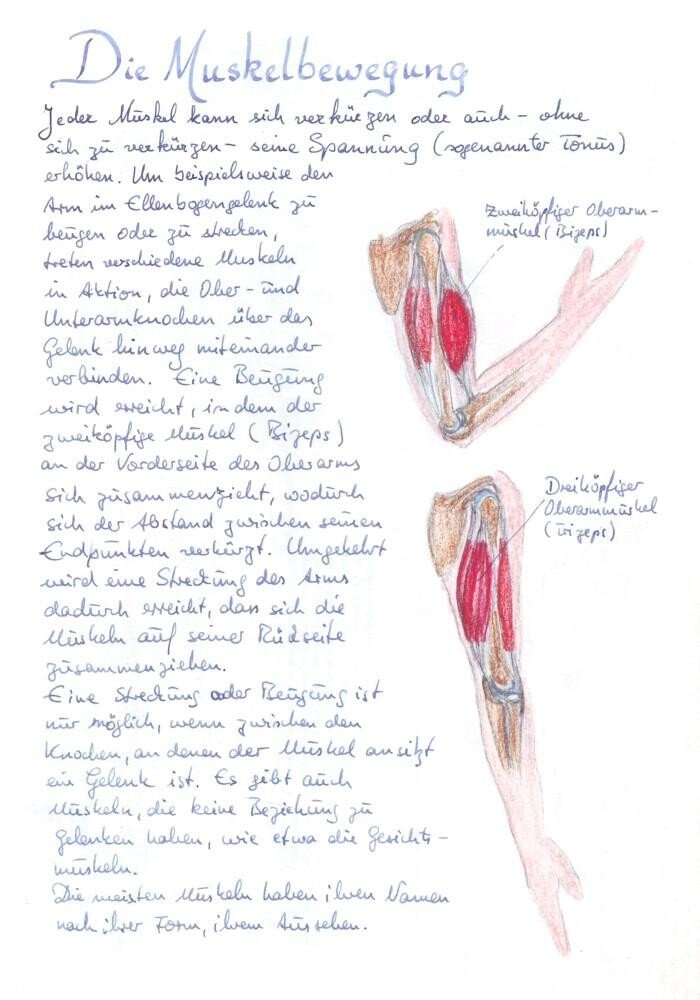 Die Muskelbewegung
Jeder Muskel kann sich verkürzen oder auch – ohne
sich zu verkürzen – seine Spannung (sogenannter Tonus)
erhöhen. Um beispielsweise den
Arm im Ellenbogengelenk zu
beugen oder zu strecken,
treten verschiedene Muskeln
in Aktion, die Ober- und
Unterarmknochen über das
Gelenk hinweg miteinander
verbinden. Eine Beugung
wird erreicht, in dem der
zweiköpfige Muskel (Bizeps)
an der Vorderseite des Oberarms
sich zusammenzieht, wodurch
sich der Abstand zwischen seinen
Endpunkten verkürzt. Umgekehrt
wird eine Streckung des Arms
dadurch erreicht, dass sich die
Muskeln auf seiner Rückseite
zusammenziehen.
Eine Streckung oder Beugung ist
nur möglich, wenn zwischen den
Knochen, an denen der Muskel ansitzt
ein Gelenk ist. Es gibt auch
Muskeln, die keine Beziehung zu
Gelenken haben, wie etwa die Gesichts-
muskeln.
Die meisten Muskeln haben ihren Namen
nach ihrer Form, ihrem Aussehen.
Zweiköpfiger Oberarm-
muskel (Bizeps)
Dreiköpfiger
Oberarmmuskel
(Trizeps)